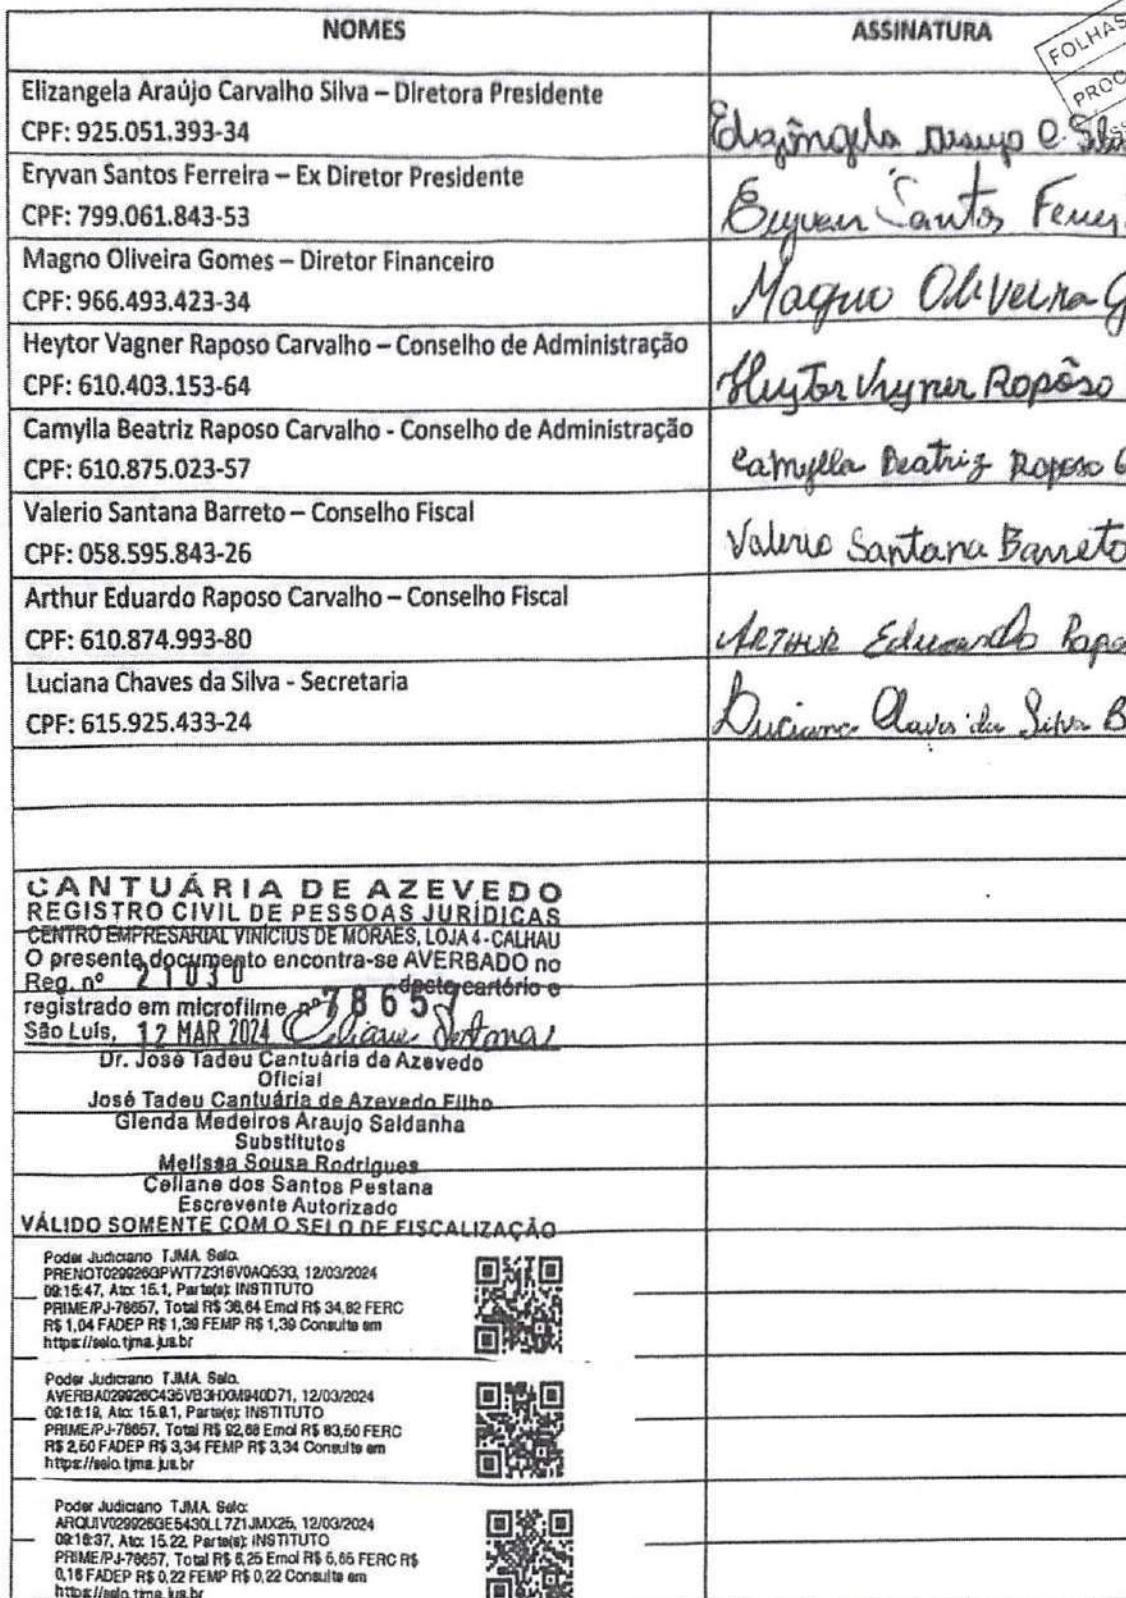 NOMES
ASSINATURA
FOLHAS
PROC
Elizangela Araújo Carvalho Silva – Diretora Presidente
CPF: 925.051.393-34
Elizângela Araujo C. Silva
Eryvan Santos Ferreira – Ex Diretor Presidente
CPF: 799.061.843-53
Eryvan Santos Ferrei
Magno Oliveira Gomes – Diretor Financeiro
CPF: 966.493.423-34
Magno Oliveira G
Heytor Vagner Raposo Carvalho – Conselho de Administração
CPF: 610.403.153-64
Heytor Vagner Rapôso
Camylla Beatriz Raposo Carvalho - Conselho de Administração
CPF: 610.875.023-57
Camylla Beatriz Raposo C
Valerio Santana Barreto – Conselho Fiscal
CPF: 058.595.843-26
Valerio Santana Barreto
Arthur Eduardo Raposo Carvalho – Conselho Fiscal
CPF: 610.874.993-80
ARTHUR Eduardo Rapo
Luciana Chaves da Silva - Secretaria
CPF: 615.925.433-24
Luciana Chaves da Silva B
CANTUÁRIA DE AZEVEDO
REGISTRO CIVIL DE PESSOAS JURÍDICAS
CENTRO EMPRESARIAL VINÍCIUS DE MORAES, LOJA 4 - CALHAU
O presente documento encontra-se AVERBADO no
Reg. nº 21030 deste cartório e
registrado em microfilme nº 78657
São Luís, 12 MAR 2024
Dr. José Tadeu Cantuária de Azevedo
Oficial
José Tadeu Cantuária de Azevedo Filho
Glenda Medeiros Araujo Saldanha
Substitutos
Melissa Sousa Rodrigues
Celiane dos Santos Pestana
Escrevente Autorizado
VÁLIDO SOMENTE COM O SELO DE FISCALIZAÇÃO
Poder Judiciario TJMA. Selo:
PRENOT029926GPWT7Z316V0AQ533, 12/03/2024
09:15:47, Ato: 15.1, Parte(s): INSTITUTO
PRIME/PJ-78657, Total R$ 38,64 Emol R$ 34,82 FERC
R$ 1,04 FADEP R$ 1,39 FEMP R$ 1,39 Consulte em
https://selo.tjma.jus.br
Poder Judiciario TJMA. Selo:
AVERBA029926C435VB3HXM940D71, 12/03/2024
09:16:19, Ato: 15.9.1, Parte(s): INSTITUTO
PRIME/PJ-78657, Total R$ 92,68 Emol R$ 83,50 FERC
R$ 2,50 FADEP R$ 3,34 FEMP R$ 3,34 Consulte em
https://selo.tjma.jus.br
Poder Judiciario TJMA. Selo:
ARQUIV029926GE5430LL7Z1JMX25, 12/03/2024
09:16:37, Ato: 15.22, Parte(s): INSTITUTO
PRIME/PJ-78657, Total R$ 6,25 Emol R$ 5,65 FERC R$
0,16 FADEP R$ 0,22 FEMP R$ 0,22 Consulte em
https://selo.tjma.jus.br